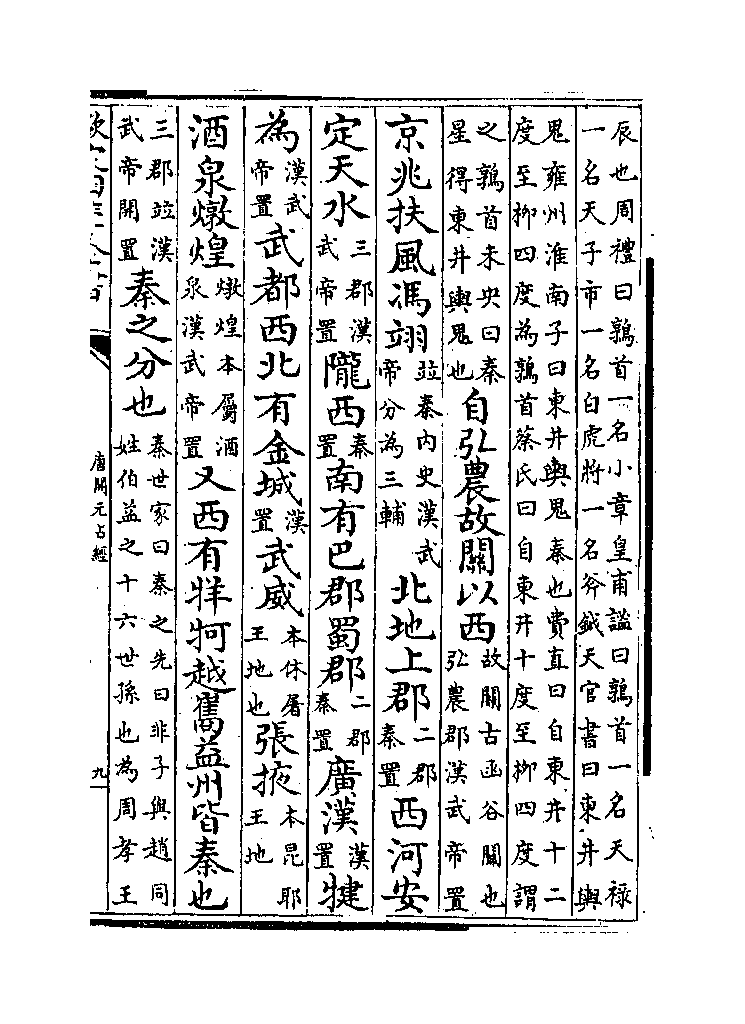 辰也周禮曰鶉首一名小章皇甫謐曰鶉首一名天祿
一名天子市一名白虎將一名斧鉞天官書曰東井輿
鬼雍州淮南子曰東井輿鬼秦也費直曰自東井十二
度至柳四度為鶉首蔡氏曰自東井十度至柳四度謂
之鶉首未央曰秦星得東井輿鬼也自弘農故關以西故關古函谷關也弘農郡漢武帝置
京兆扶風馮翊竝秦內史漢武帝分為三輔北地上郡二郡秦置西河安
定天水三郡漢武帝置隴西秦置南有巴郡蜀郡二郡秦置廣漢漢置犍
為漢武帝置武都西北有金城漢置武威本休屠王地也張掖本昆耶王地
酒泉燉煌燉煌本屬酒泉漢武帝置又西有牂牁越巂益州皆秦也
三郡竝漢武帝開置秦之分也秦世家曰秦之先曰非子與趙同姓伯益之十六世孫也為周孝王
唐開元占經
九